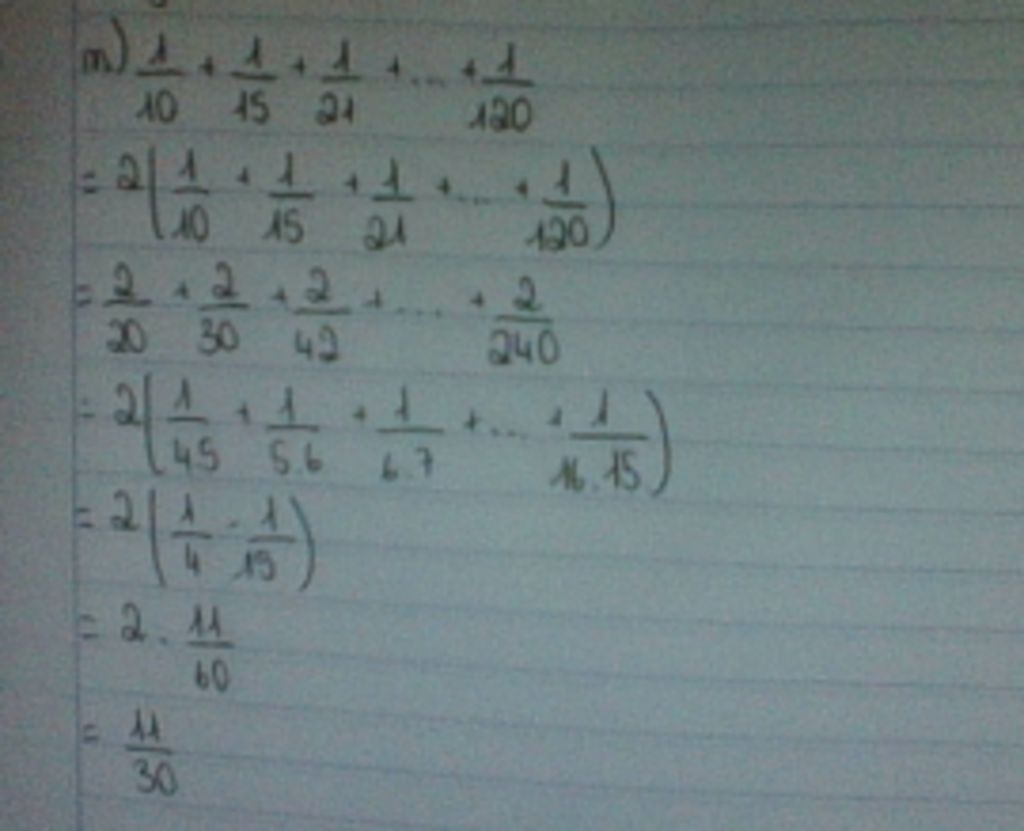 m) 1/10 + 1/15 + 1/21 + ... + 1/120
= 2(1/10 + 1/15 + 1/21 + ... + 1/120)
= 2/20 + 2/30 + 2/42 + ... + 2/240
= 2(1/4.5 + 1/5.6 + 1/6.7 + ... + 1/16.15)
= 2(1/4 - 1/15)
= 2 . 11/60
= 11/30